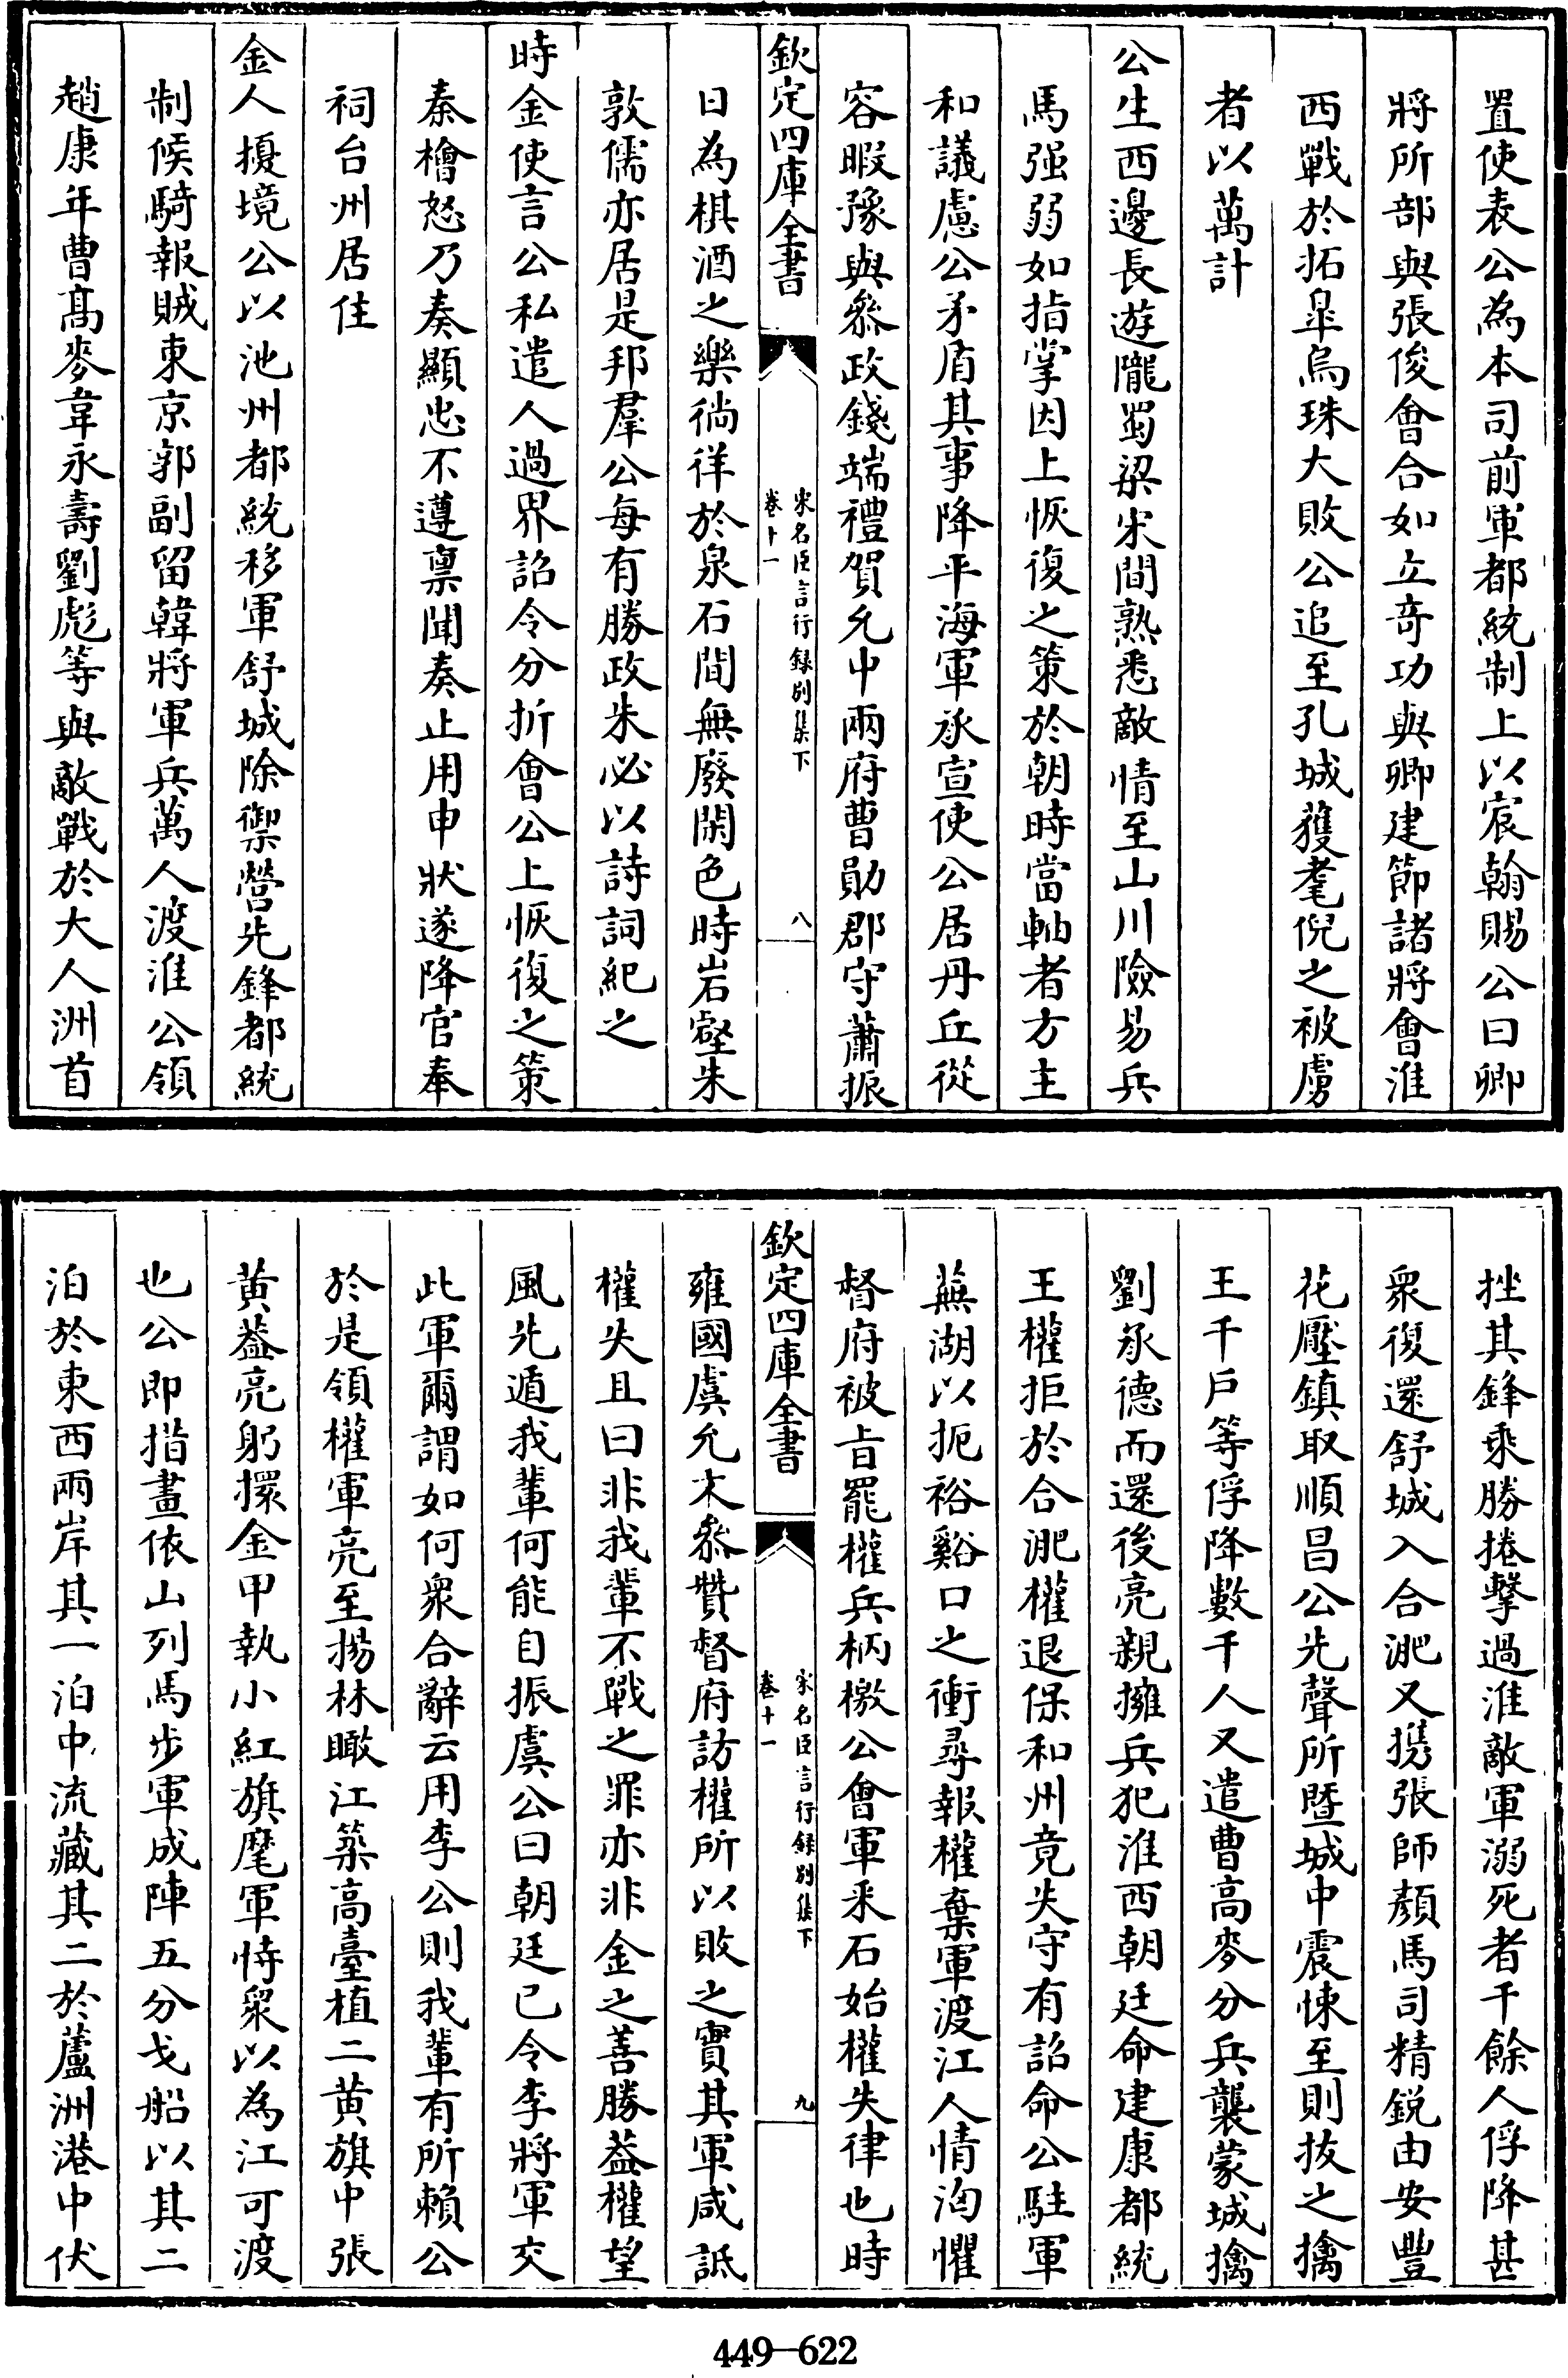 置使表公為本司前軍都統制上以宸翰賜公曰卿
將所部與張俊會合如立竒功與卿建節諸將會淮
西戰於拓臯烏珠大敗公追至孔城獲耄倪之被虜
者以萬計
公生西邊長遊隴蜀梁宋間熟悉敵情至山川險易兵
馬强弱如指掌因上恢復之策於朝時當軸者方主
和議慮公矛盾其事降平海軍承宣使公居丹丘從
容暇豫與叅政錢端禮賀允中兩府曹勛郡守蕭振
欽定四庫全書
宋名臣言行録别集下
卷十一
八
日為棋酒之樂徜徉於泉石間無廢閑色時岩壑朱
敦儒亦居是邦羣公每有勝政朱必以詩詞紀之
時金使言公私遣人過界詔令分折會公上恢復之策
秦檜怒乃奏顯忠不遵禀聞奏止用申狀遂降官奉
祠台州居住
金人擾境公以池州都統移軍舒城除禦營先鋒都統
制候騎報賊東京郭副留韓將軍兵萬人渡淮公領
趙康年曹髙麥韋永壽劉彪等與敵戰於大人洲首
挫其鋒乘勝捲擊過淮敵軍溺死者千餘人俘降甚
衆復還舒城入合淝又攜張師顔馬司精鋭由安豐
花靨鎮取順昌公先聲所暨城中震悚至則拔之擒
王千戶等俘降數千人又遣曹高麥分兵襲蒙城擒
劉承德而還後亮親擁兵犯淮西朝廷命建康都統
王權拒於合淝權退保和州竟失守有詔命公駐軍
蕪湖以扼裕谿口之衝尋報權棄軍渡江人情洶懼
督府被㫖罷權兵柄檄公會軍采石始權失律也時
欽定四庫全書
宋名臣言行録别集下
卷十一
九
雍國虞允文叅贊督府訪權所以敗之實其軍咸詆
權失且曰非我輩不戰之罪亦非金之善勝葢權望
風先遁我輩何能自振虞公曰朝廷已令李將軍交
此軍爾謂如何衆合辭云用李公則我輩有所賴公
於是領權軍亮至揚林瞰江築高臺植二黄旗中張
黄葢亮躬擐金甲執小紅旗麾軍恃衆以為江可渡
也公即措畫依山列馬步軍成陣五分戈船以其二
泊於東西兩岸其一泊中流藏其二於蘆洲港中伏
449—622